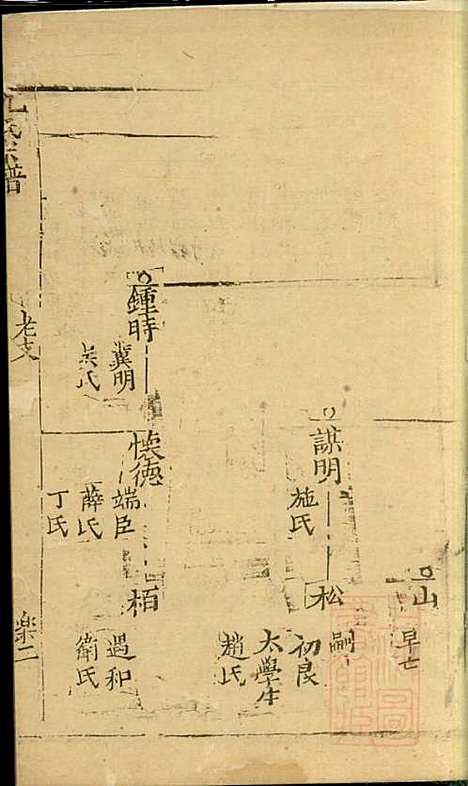 山
早亡
謀明
施氏
松
嗣
初良
太學生
趙氏
鍾時
冀明
吳氏
懷德
端臣
薛氏
丁氏
栢
遇和
衛氏
氏宗譜
老支
樂二